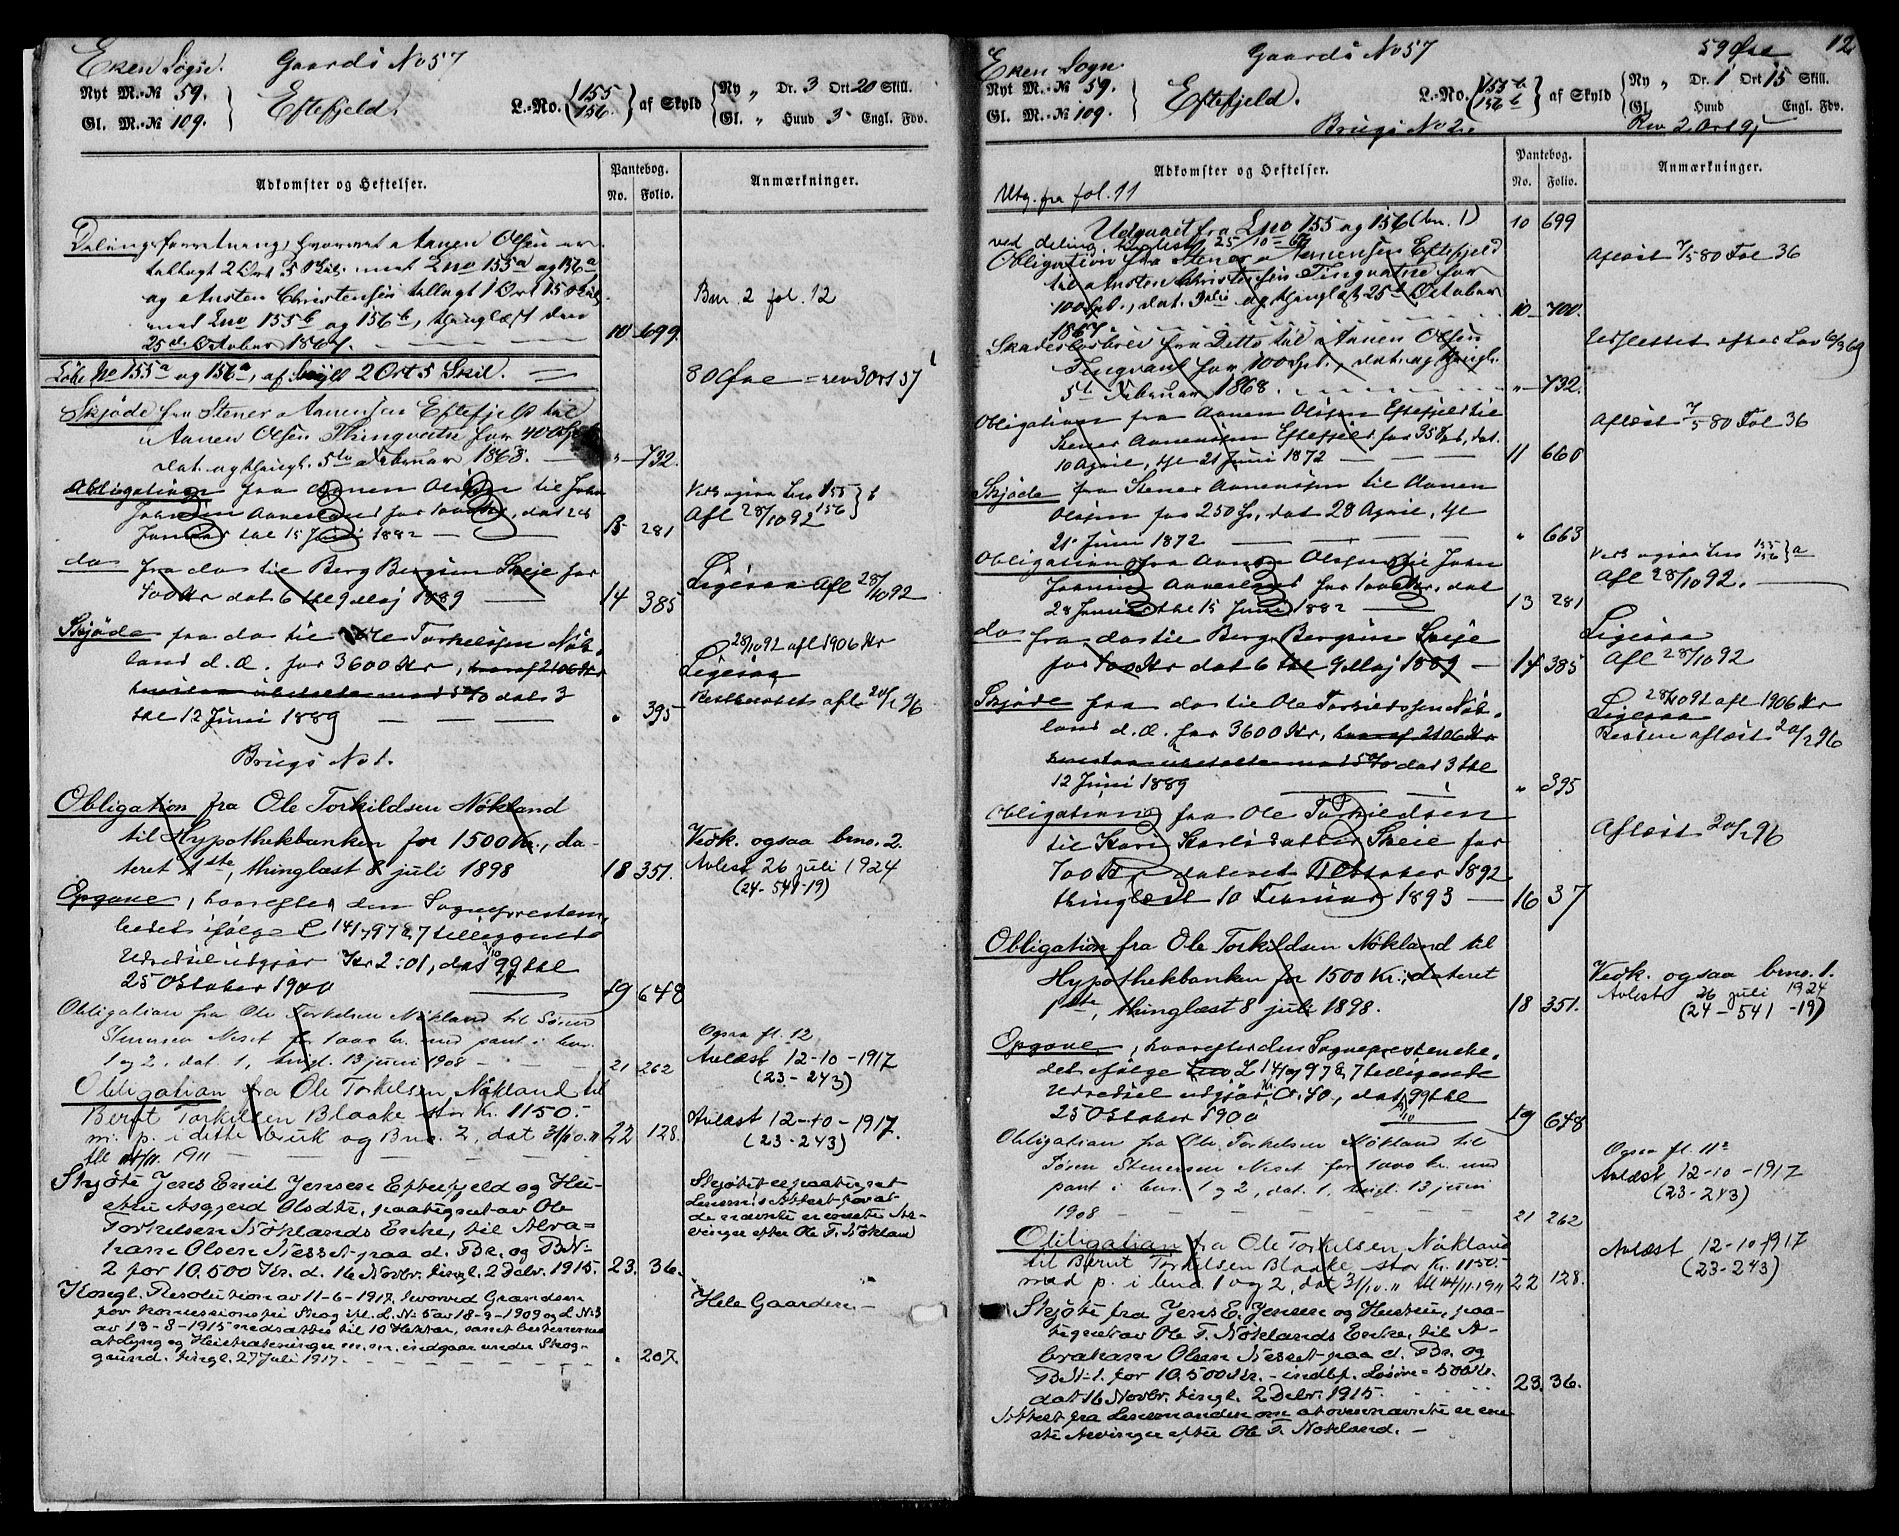 Eken Sogn. Gaards No 57
Nyt M.-№ 59. Eftefjeld. L.-No. (155 156.) af Skyld Ny „ Dr. 3 Ort 20 Skill.
Gl. M.-№ 109. Gl. „ Huud 3 Engl. Fdv.
Adkomster og Heftelser. Pantebog. No. Folio. Anmærkninger.
Delingsforretning, hvorved Aanen Olsen er
tillagt 2 Ort 5 Skil. med Lno 155a og 156a
og Austen Christensen tillagt 1 Ort 15 Skil.
med Lno 155b og 156b, thinglæst den Bnr. 2 fol. 12
25de October 1867. 10 699.
Løbe No 155a og 156a, af Skyld 2 Ort 5 Skil. 80 Øre = rev 3 Ort 57
Skjøde fra Stener Aanensen Eftefjeld til
Aanen Olsen Thingvatn for 400 Spd.
dat. og thingl. 5te Februar 1868. „ 732.
Obligation fra Aanen Olsen til John
Johnsen Aanesland for 1000 Kr., dat 28
Januar thl 15 Juni 1882 13 281
Vedk ogsaa Lno 155 156 } b
Afl 28/10 92
do fra do til Berg Bergsen Skeie for
400 Kr dat 6 thl 9 Maj 1889 14 385 Ligesaa Afl 28/10 92
Skjøde fra do til Ole Torkelsen Nøk-
land d. æ. for 3600 Kr, hvoraf 2106 Kr
henstaar ubetalte mod 5% dat 3
thl 12 Juni 1889 „ 395
28/10 92 afl 1906 Kr
Ligesaa
Restbeløbet afl. 20/2 96
Brugs No 1.
Obligation fra Ole Torkildsen Nøkland
til Hypothekbanken for 1500 Kr., da-
teret 1ste, thinglæst 8 juli 1898 18 351.
Vedk. ogsaa brno. 2.
Avlest 26 juli 1924
(24-541-19)
Opgave, hvorefter den Sognepresten-
bedet ifølge L 14/7 97 § 7 tilliggende
Udredsel udgjør Kr 2:01, dat 9/10 99 thl
25 Oktober 1900 19 648
Obligation fra Ole Torkelsen Nøkland til Søren
Stenersen Neset for 1000 kr. med pant i bnr.
1 og 2, dat. 1, tingl. 13 juni 1908 21 262
Ogsaa fl. 12,
Avlæst 12-10-1917
(23-243)
Obligation fra Ole Torkelsen Nøkland til
Bernt Torkelsen Blaake stor Kr. 1150.-
m. p. i dette bruk og Bno. 2, dat 31/10. 11 22 128.
thl 14/11. 1911
Avlæst 12-10-1917.
(23-243)
Skjøte Jens Emil Jensen Eftefjeld og Hu-
stru Asgjerd Olsdtr, paategnet av Ole
Torkelsen Nøklands Enke, til Abra=
ham Olsen Nesset paa d. Br. og BN
2 for 10.500 Kr. d. 16 Novbr. tingl. 2 Debr. 1915. 23. 36.
Skjøtet er paategnet
Lensm's Attest for at
de nævnte er eneste Ar-
vinger efter Ole T. Nøkland
Kongl. Resolution av 11-6-1917, hvorved Grændsen
for konsessionsfri Skog ifl. L. № 5 av 18-9-1909 og L № 3
av 13-8-1915 nedsættes til 10 Hektar, samt bestemmes
at Lyng og Heistrækninger m.m. indgaar under Skog-
grund. tingl. 27 Juli 1917. „ 207.
Hele Gaarden.-
Eken Sogn. Gaards No 57 59 Øre 12
Nyt M.-№ 59. Eftefjeld. L.-No. (155b 156b) af Skyld Ny „ Dr. 1 Ort 15 Skill.
Gl. M.-№ 109. Gl. Huud Engl. Fdv.
Brugs No 2. Rev 2 Ort 9
Adkomster og Heftelser. Pantebog. No. Folio. Anmærkninger.
Utg. fra fol. 11
Udgaaet fra Lno 155 og 156 (bn. 1) 10 699
ved deling, tinglest 25/10-67
Obligation fra Stener Aanensen Eftefjeld
til Austen Christensen Tingvatne for
100 Spd., dat. og thinglæst 25de October
1867. 10 700. Afløst 7/5 80 Fol 36
Skadesløsbrev fra Ditto til Aanen Olsen
Tingvatn for 100 Spd., dat. og thingl.
5te Februar 1868. „ 732. Udslettet efter Lov
Obligation fra Aanen Olsen Eftefjeld til
Stener Aanensen Eftefjeld for 95 Spd, dat.
10 April, thl 21 Juni 1872 11 660 Afløst 7/5 80 Fol 36
Skjøde fra Stener Aanensen til Aanen
Olsen for 250 Sp, dat 28 April, thl
21 Juni 1872 „ 663
Obligation fra Aanen Olsen til John
Johnsen Aanesland for 1000 Kr, dat
28 Janr thl 15 Juni 1882 13 281
Vedk ogsaa Lno 155 156 } a
Afl 28/10 92.
do fra do til Berg Bergsen Skeie
for 400 Kr dat 6 thl 9 Maj 1889 14 385
Ligesaa
Afl 28/10 92
Skjøde fra do til Ole Torkildsen Nøk-
land d. æ. for 3600 Kr, hvoraf 2106 Kr
henstaar ubetalte mod 5% dat 3 thl
12 Juni 1889 „ 395
28/10 92 afl 1906 Kr
Ligesaa
Resten afløst 20/2 96
Obligation fra Ole Torkildsen
til Kari Karlsdatter Skeie for
700 Kr, dateret 1 Oktober 1892
thinglæst 10 Februar 1893 16 37
Afløst 20/2 96
Obligation fra Ole Torkildsen Nøkland til
Hypothekbanken for 1500 Kr., dateret
1ste, thinglæst 8 juli 1898. 18 351.
Vedk. ogsaa brno. 1.
Avlest 26 juli 1924
(24-541-19)
Opgave, hvorefter den Sogneprestenbe-
det ifølge L 14/7 97 § 7 tilliggende
Udredsel udgjør Kr. 0.40, dat 9/10 99 thl
25 Oktober 1900 19 648
Obligation fra Ole Torkelsen Nøkland til
Søren Stenersen Neset for 1000 kr. med
pant i bnr. 1 og 2, dat. 1, tingl. 13 juni
1908 21 262
Ogsaa fl. 11
Avlæst 12-10-1917
(23-243)
Obligation fra Ole Torkelsen Nøkland
til Bernt Torkelsen Blaake stor Kr. 1150.-
med p. i bno 1 og 2, dat 31/10. 11 thl 14/11. 1911 22 128.
Avlæst 12-10-1917
(23-243)
Skjøte fra Jens E. Jensen og Hustru, paa-
tegnet av Ole T. Nøklands Enke, til A-
braham Olsen Nesset paa d. Br. og
BN 1. for 10.500 Kr. - indbf. Løsøre = 500 Kr.
dat 16 Novbr. tingl. 2 Debr. 1915. 23. 36.
Attest fra Lensmanden om at ovennævnte er ene
ste Arvinger efter Ole T. Nøkland.-